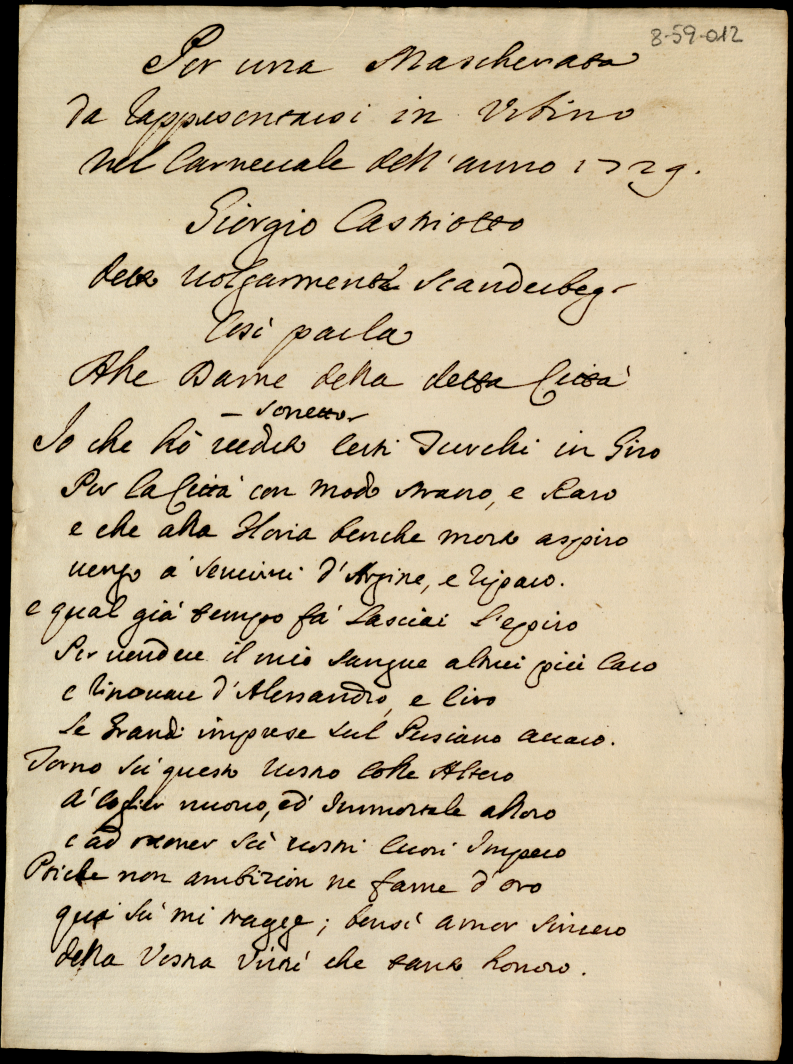 8-59-012
Per una Mascherata
da rappresentarsi in Urbino
nel Carneuale dell'anno 1729.
Giorgio Castriotto
detto uolgarmente Scanderbeg
Così parla
Alle Dame della detta Città
- Sonetto
Io che hò ueduto certi Turchi in Giro
Per la Città con modo strano, e Raro
e che alla Gloria benche morto aspiro
uengo a' seruirui d'Argine, e riparo.
e qual già tempo fà Lasciai L'epiro
Per uendere il mio sangue altrui più Caro
e rinouare d'Alessandro, e Ciro
Le Grandi imprese sul Persiano acciaro.
Torno sù questo uostro Colle Altero
A' Coglier nuouo, ed' Immortale alloro
e ad ottener sù uostri Cuori Impero
Poiche non ambizion ne fame d'oro
quà sù mi tragge; bensì amor sincero
della Vostra Virtù che tanto honoro.